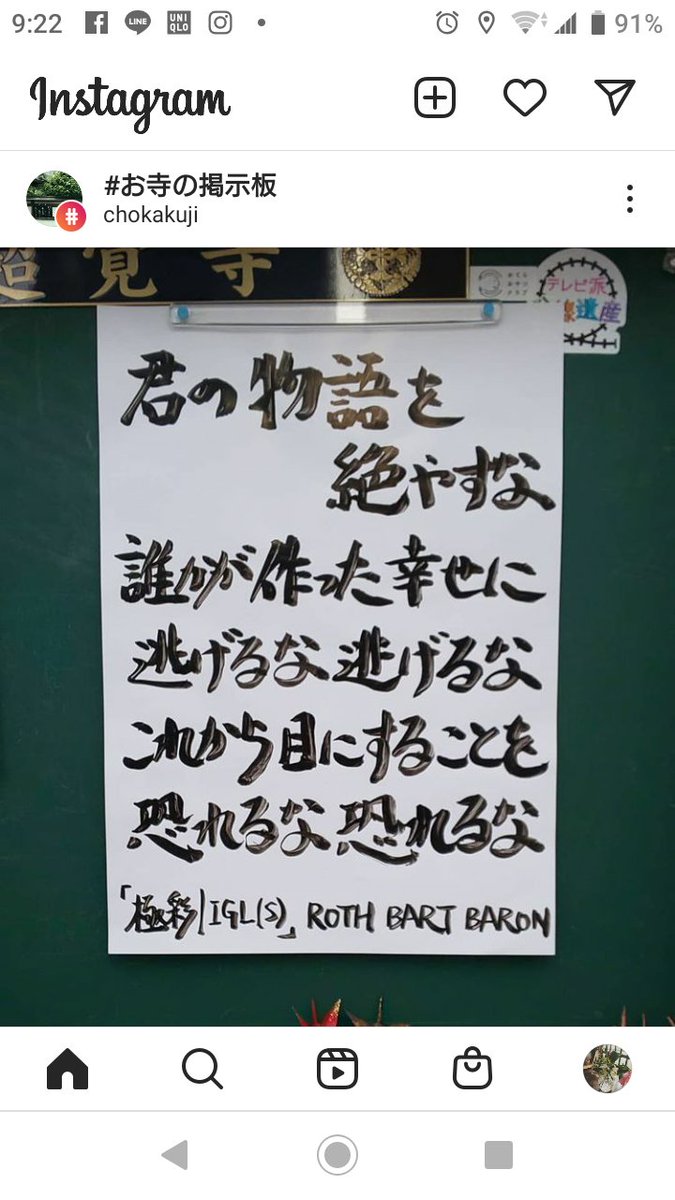 9:22
LINE
UNI
QLO
91%
Instagram
#お寺の掲示板
chokakuji
超覚寺
テレビ派
遺産
君の物語を
絶やすな
誰かが作った幸せに
逃げるな逃げるな
これから目にすることを
恐れるな恐れるな
「極彩|IGL(S)」ROTH BART BARON